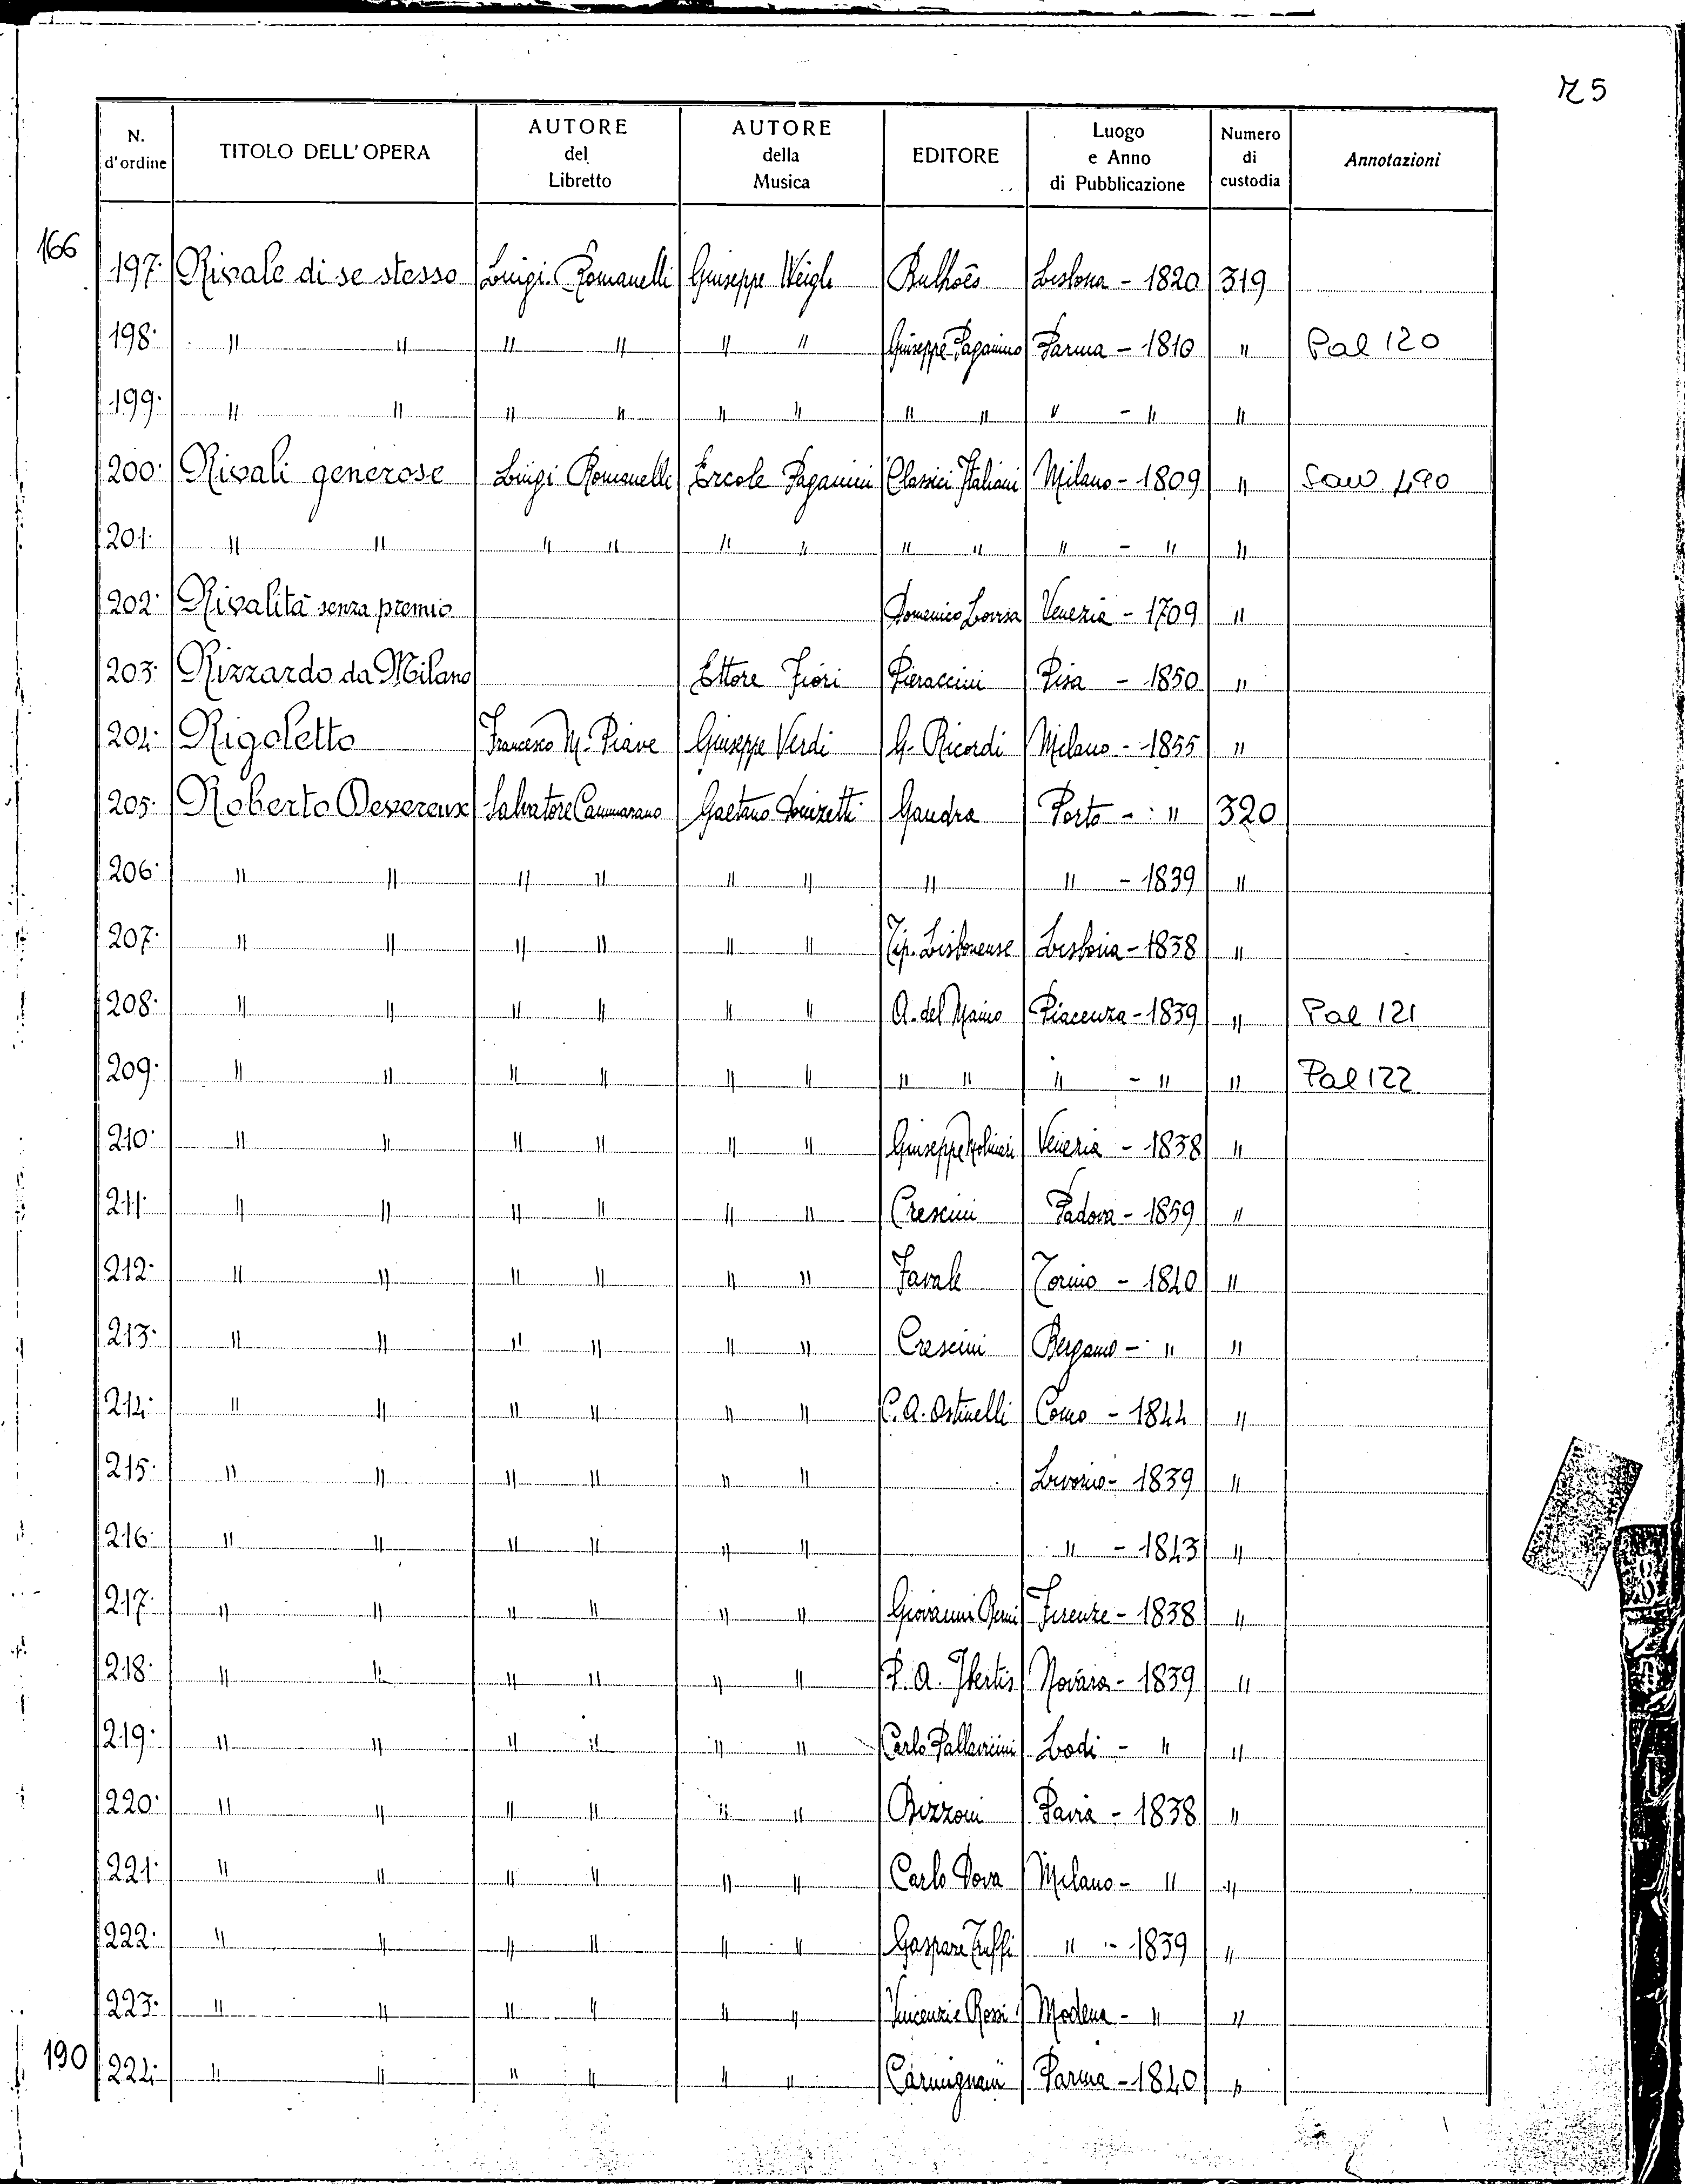 R5
N. d'ordine | TITOLO DELL'OPERA | AUTORE del Libretto | AUTORE della Musica | EDITORE | Luogo e Anno di Pubblicazione | Numero di custodia | Annotazioni
166
197. Rivale di se stesso | Luigi Romanelli | Giuseppe Weigl | Bulhoẽs | Lisbona - 1820 | 319
198. " " | " " | " " | Giuseppe Paganino | Parma - 1810 | " | Pal 120
199. " " | " " | " " | " " | " - " | "
200. Rivali generose | Luigi Romanelli | Ercole Paganini | Classici Italiani | Milano - 1809 | " | 490
201. " " | " " | " " | " " | " - " | "
202. Rivalità senza premio | | | Domenico Lovisa | Venezia - 1709 | "
203. Rizzardo da Milano | | Ettore Fiori | Pieraccini | Pisa - 1850 | "
204. Rigoletto | Francesco M. Piave | Giuseppe Verdi | G. Ricordi | Milano - 1855 | "
205. Roberto Devereux | Salvatore Cammarano | Gaetano Donizetti | Gandra | Porto - " | 320
206. " " | " " | " " | " | " - 1839 | "
207. " " | " " | " " | Tip. Lisbonense | Lisbona - 1838 | "
208. " " | " " | " " | A. del Maino | Piacenza - 1839 | " | Pal 121
209. " " | " " | " " | " " | " - " | " | Pal 122
210. " " | " " | " " | Giuseppe Molinari | Venezia - 1838 | "
211. " " | " " | " " | Crescini | Padova - 1859 | "
212. " " | " " | " " | Favale | Torino - 1840 | "
213. " " | " " | " " | Crescini | Bergamo - " | "
214. " " | " " | " " | C. A. Ostinelli | Como - 1844 | "
215. " " | " " | " " | | Livorno - 1839 | "
216. " " | " " | " " | | " - 1843 | "
217. " " | " " | " " | Giovanni | Firenze - 1838 | "
218. " " | " " | " " | P. A. Ibertis | Novara - 1839 | "
219. " " | " " | " " | Carlo Pallavicini | Lodi - " | "
220. " " | " " | " " | Bizzoni | Pavia - 1838 | "
221. " " | " " | " " | Carlo Dova | Milano - " | "
222. " " | " " | " " | Gaspare Truffi | " - 1839 | "
223. " " | " " | " " | Vincenzi e Rossi | Modena - " | "
190
224. " " | " " | " " | Carmignani | Parma - 1840 | "